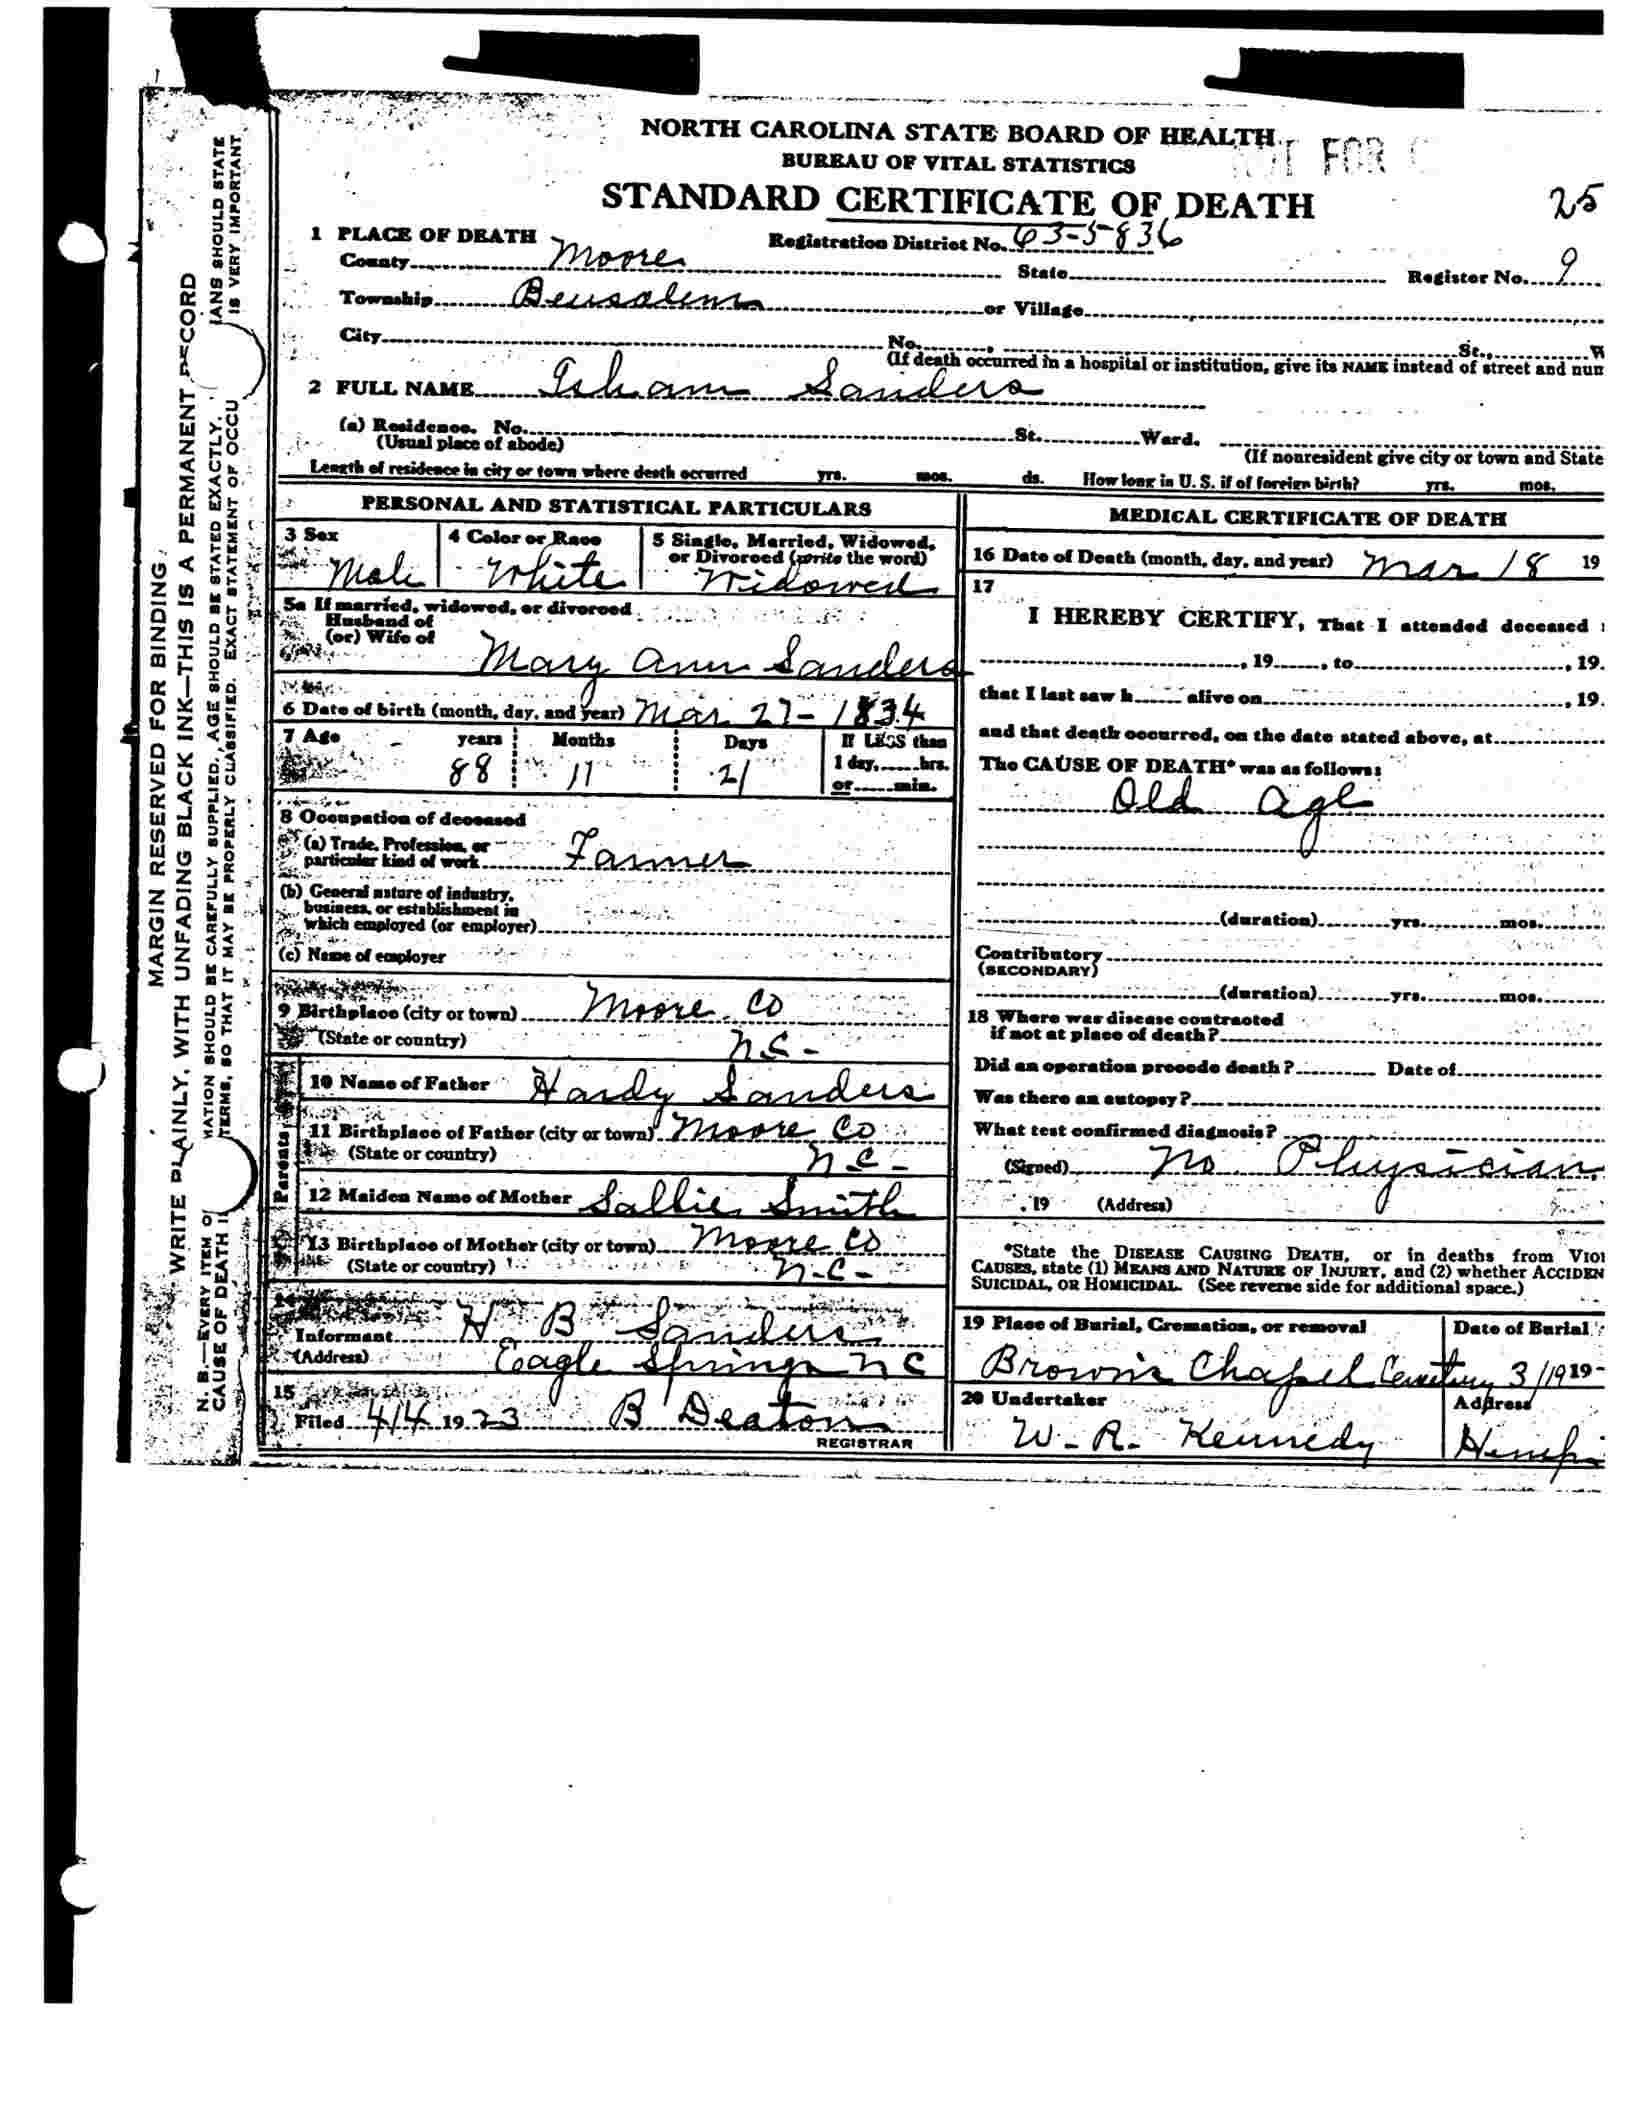 NORTH CAROLINA STATE BOARD OF HEALTH
BUREAU OF VITAL STATISTICS
FOR
STANDARD CERTIFICATE OF DEATH
25
1 PLACE OF DEATH
Registration District No. 63-5-836
County Moore State Register No. 9
Township Bensalem or Village
City No. St., W
(If death occurred in a hospital or institution, give its NAME instead of street and num
2 FULL NAME Isham Sanders
(a) Residence. No. St. Ward.
(Usual place of abode) (If nonresident give city or town and State
Length of residence in city or town where death occurred yrs. mos. ds. How long in U. S. if of foreign birth? yrs. mos.
PERSONAL AND STATISTICAL PARTICULARS
3 Sex
Male
4 Color or Race
White
5 Single, Married, Widowed,
or Divorced (write the word)
Widowed
5a If married, widowed, or divorced
Husband of
(or) Wife of
Mary Ann Sanders
6 Date of birth (month, day, and year) Mar 27- 1834
7 Age years Months Days If LESS than
88 11 21 1 day, hrs.
or min.
8 Occupation of deceased
(a) Trade, Profession, or
particular kind of work Farmer
(b) General nature of industry,
business, or establishment in
which employed (or employer)
(c) Name of employer
9 Birthplace (city or town) Moore Co
(State or country) N.C-
Parents
10 Name of Father Hardy Sanders
11 Birthplace of Father (city or town) Moore Co
(State or country) N.C-
12 Maiden Name of Mother Sallie Smith
13 Birthplace of Mother (city or town) Moore Co
(State or country) N-C-
14
Informant H. B Sanders
(Address) Eagle Springs NC
15
Filed 4/4 1923 B Deaton
REGISTRAR
MEDICAL CERTIFICATE OF DEATH
16 Date of Death (month, day, and year) Mar 18 19
17
I HEREBY CERTIFY, That I attended deceased
, 19 , to , 19.
that I last saw h alive on , 19.
and that death occurred, on the date stated above, at
The CAUSE OF DEATH* was as follows:
Old Age
(duration) yrs. mos.
Contributory
(SECONDARY)
(duration) yrs. mos.
18 Where was disease contracted
if not at place of death?
Did an operation precede death? Date of
Was there an autopsy?
What test confirmed diagnosis?
(Signed) No Physician
, 19 (Address)
*State the DISEASE CAUSING DEATH, or in deaths from VIOL
CAUSES, state (1) MEANS AND NATURE OF INJURY, and (2) whether ACCIDEN
SUICIDAL, OR HOMICIDAL. (See reverse side for additional space.)
19 Place of Burial, Cremation, or removal Date of Burial
Brown's Chapel Cemetery 3/19 19-
20 Undertaker Address
W. R. Kennedy Hemp
MARGIN RESERVED FOR BINDING
WRITE PLAINLY, WITH UNFADING BLACK INK—THIS IS A PERMANENT RECORD
N. B.—EVERY ITEM O MATION SHOULD BE CAREFULLY SUPPLIED, AGE SHOULD BE STATED EXACTLY. IANS SHOULD STATE
CAUSE OF DEATH I TERMS, SO THAT IT MAY BE PROPERLY CLASSIFIED. EXACT STATEMENT OF OCCU IS VERY IMPORTANT